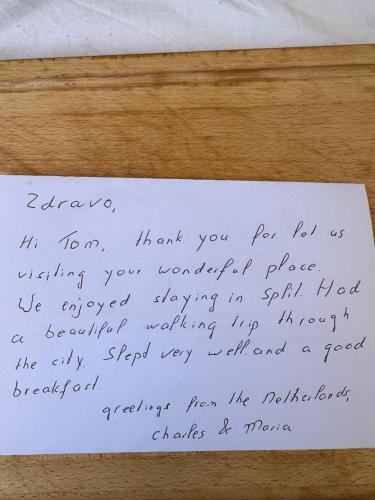 Zdravo,
Hi Tom, thank you for let us
visiting your wonderful place.
We enjoyed staying in Split. Had
a beautiful walking trip through
the city. Slept very well and a good
breakfast.
greetings from the Netherlands,
Charles & Maria